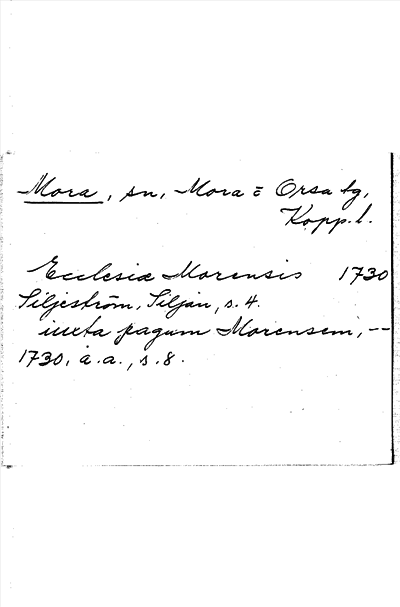 Mora, sn, Mora = Orsa tg,
Kopp. l.
Ecclesiæ Morensis 1730
Siljeström, Siljan, s. 4.
iuxta pagum Morensem, --
1730, a.a., s. 8.